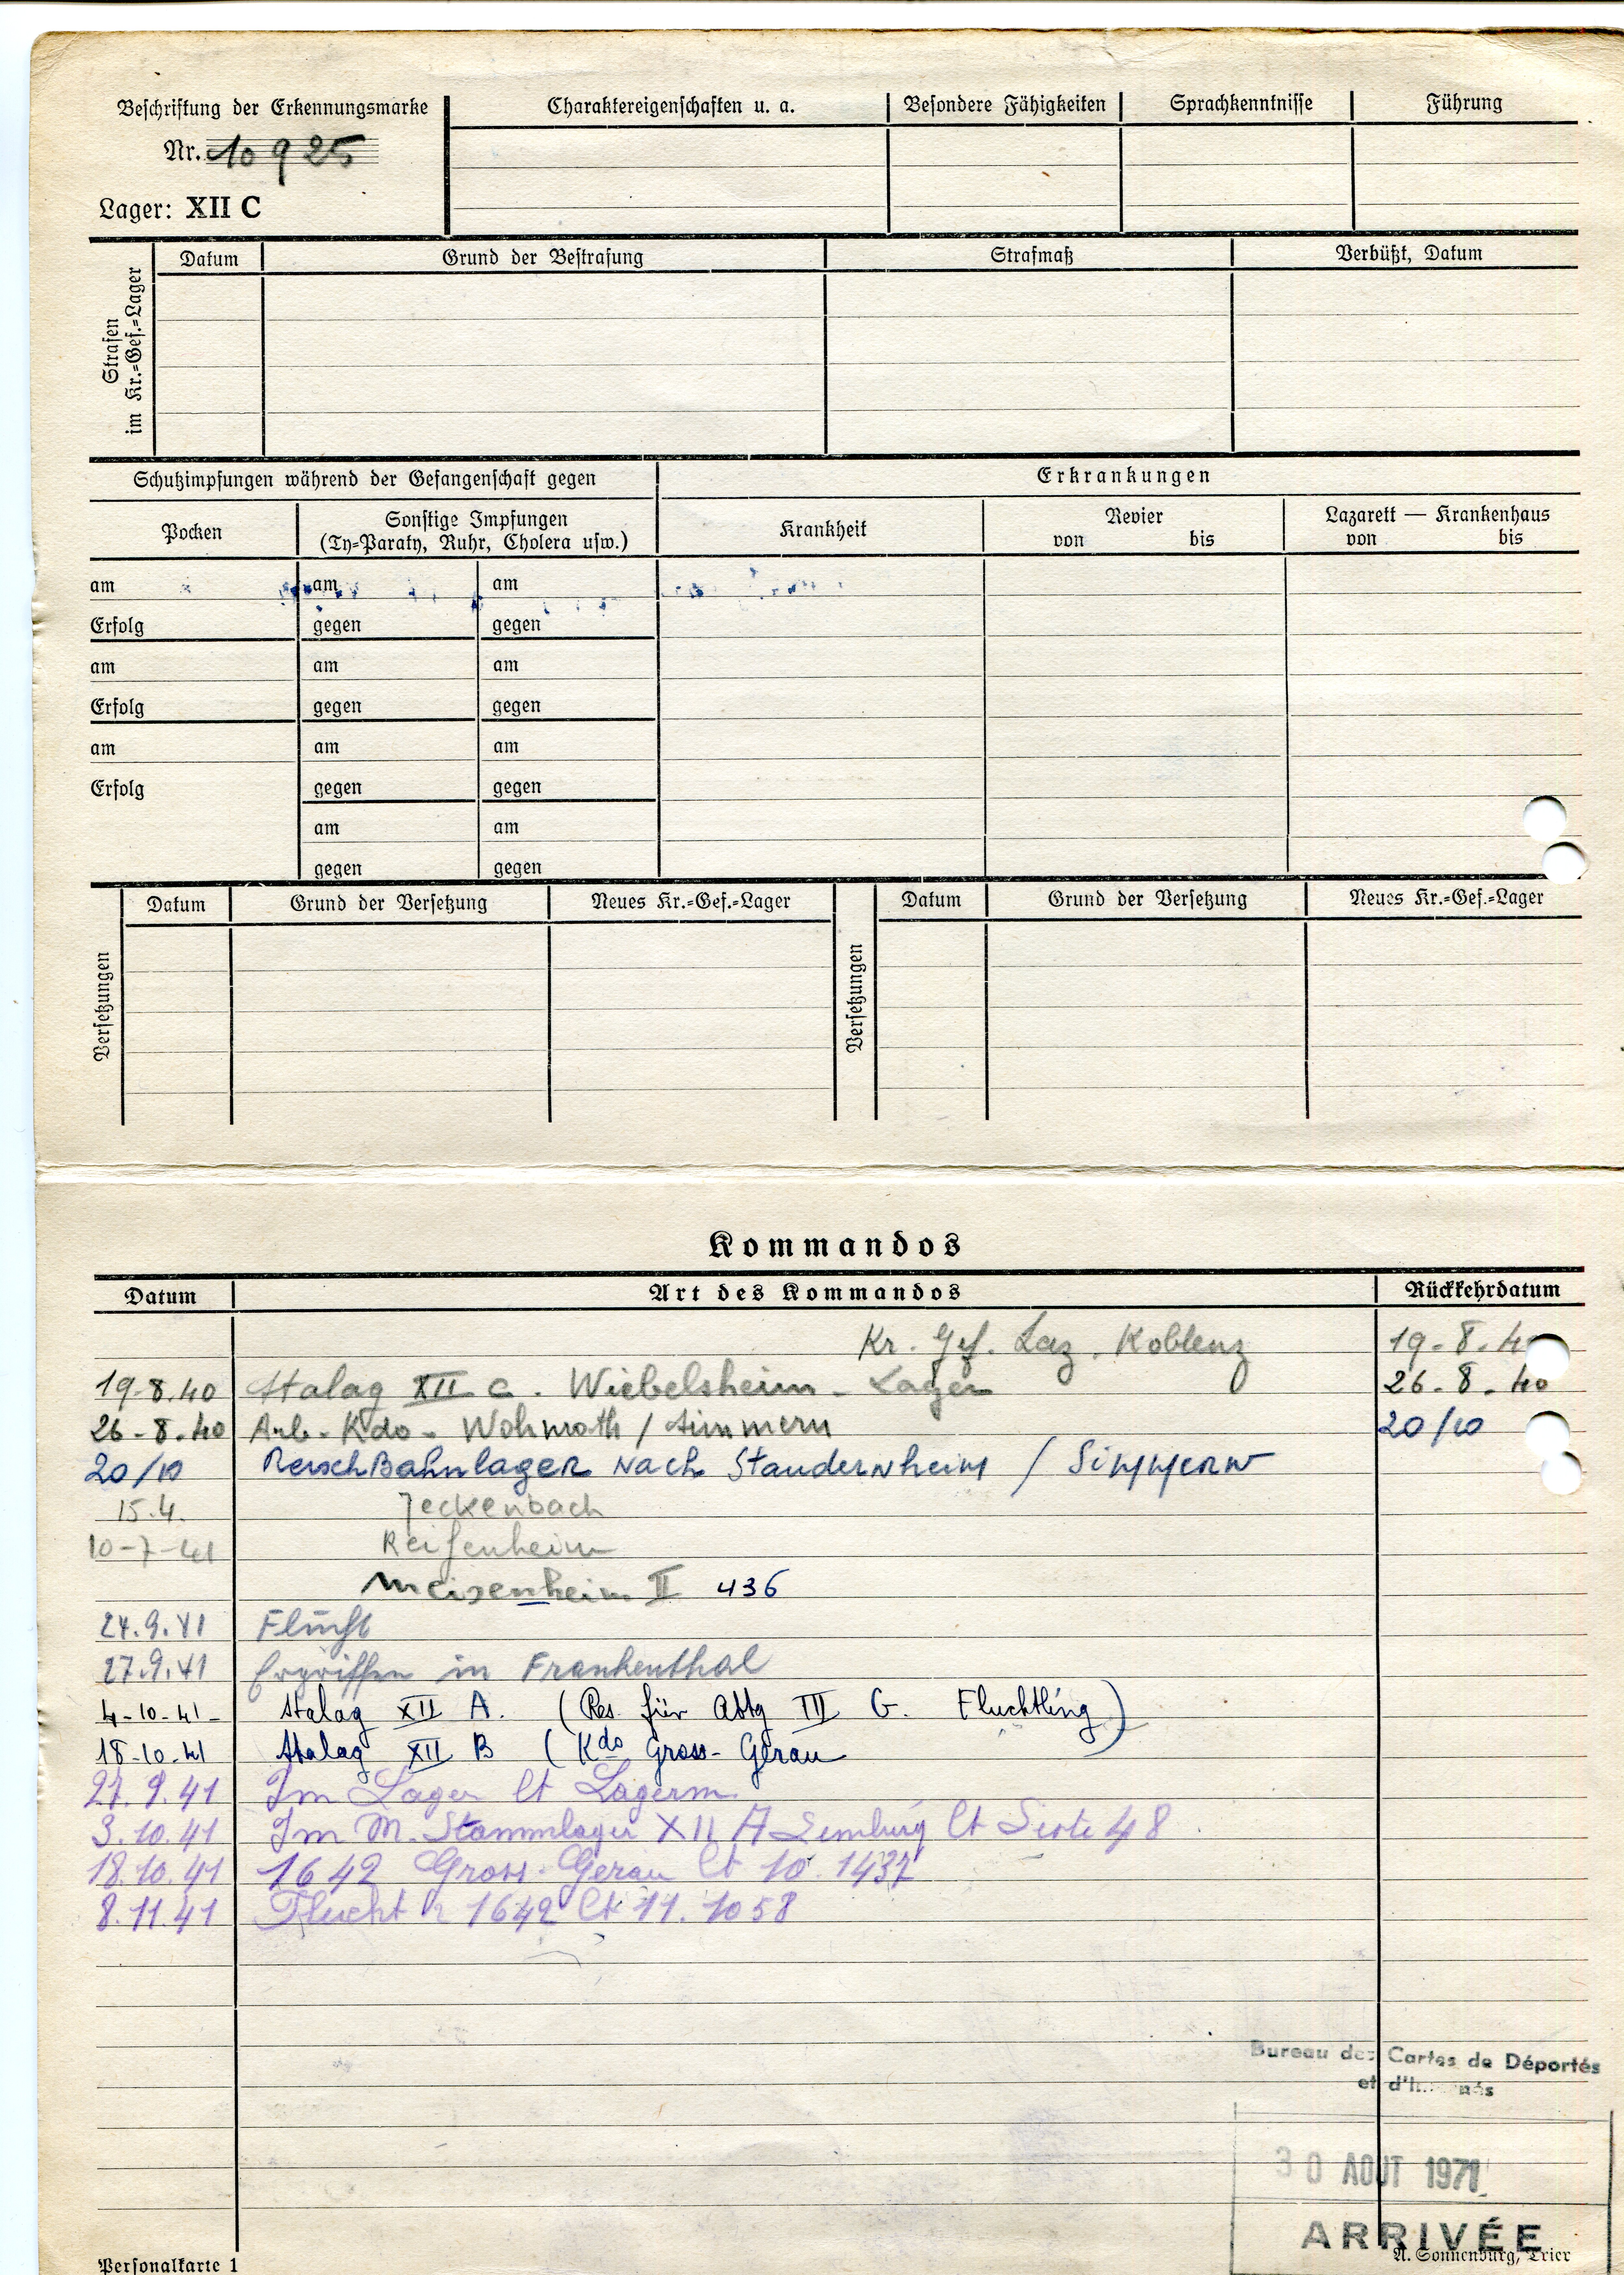 Beschriftung der Erkennungsmarke
Nr. 10925
Lager: XII C
Charaktereigenschaften u. a. Besondere Fähigkeiten Sprachkenntnisse Führung
Strafen im Kr.=Gef.=Lager
Datum Grund der Bestrafung Strafmaß Verbüßt, Datum
Schutzimpfungen während der Gefangenschaft gegen Erkrankungen
Pocken Sonstige Impfungen Krankheit Revier Lazarett — Krankenhaus
(Ty=Paraty, Ruhr, Cholera usw.) von bis von bis
am am am
Erfolg gegen gegen
am am am
Erfolg gegen gegen
am am am
Erfolg gegen gegen
am am
gegen gegen
Versetzungen Datum Grund der Versetzung Neues Kr.=Gef.=Lager Versetzungen Datum Grund der Versetzung Neues Kr.=Gef.=Lager
Kommandos
Datum Art des Kommandos Rückkehrdatum
Kr. Gef. Laz. Koblenz 19-8.4
19-8.40 Stalag XII C. Wiebelsheim - Lager 26-8.40
26-8.40 Arb-Kdo- Wohnroth / Simmern 20/10
20/10 ReischBahnlager Nach Staudernheim / Simmern
15.4. Jeckenbach
10-7-41 Reifenheim
Meisenheim II 436
24.9.41 Flucht
27.9.41 Ergriffen in Frankenthal
4-10-41- Stalag XII A. (Res. für Abtg III G. Fluchtling)
18-10-41 Stalag XII B (Kdo Gross-Gerau
27.9.41 Im Lager lt Lagerm.
3.10.41 Im M. Stammlager XII A Limburg lt Liste 48
18.10.41 1642 Gross-Gerau lt 10.1437
8.11.41 Flucht 1642 lt 11.1058
Bureau des Cartes de Déportés
et
30 AOUT 1971
ARRIVÉE
Personalkarte 1 A. Sonnenburg, Trier